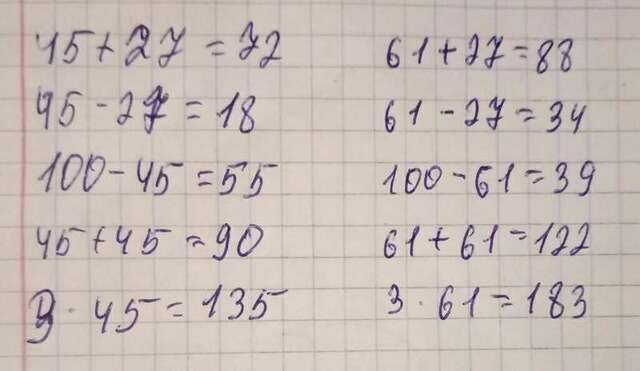 45+27=72 61+27=88
45-27=18 61-27=34
100-45=55 100-61=39
45+45=90 61+61=122
3·45=135 3·61=183